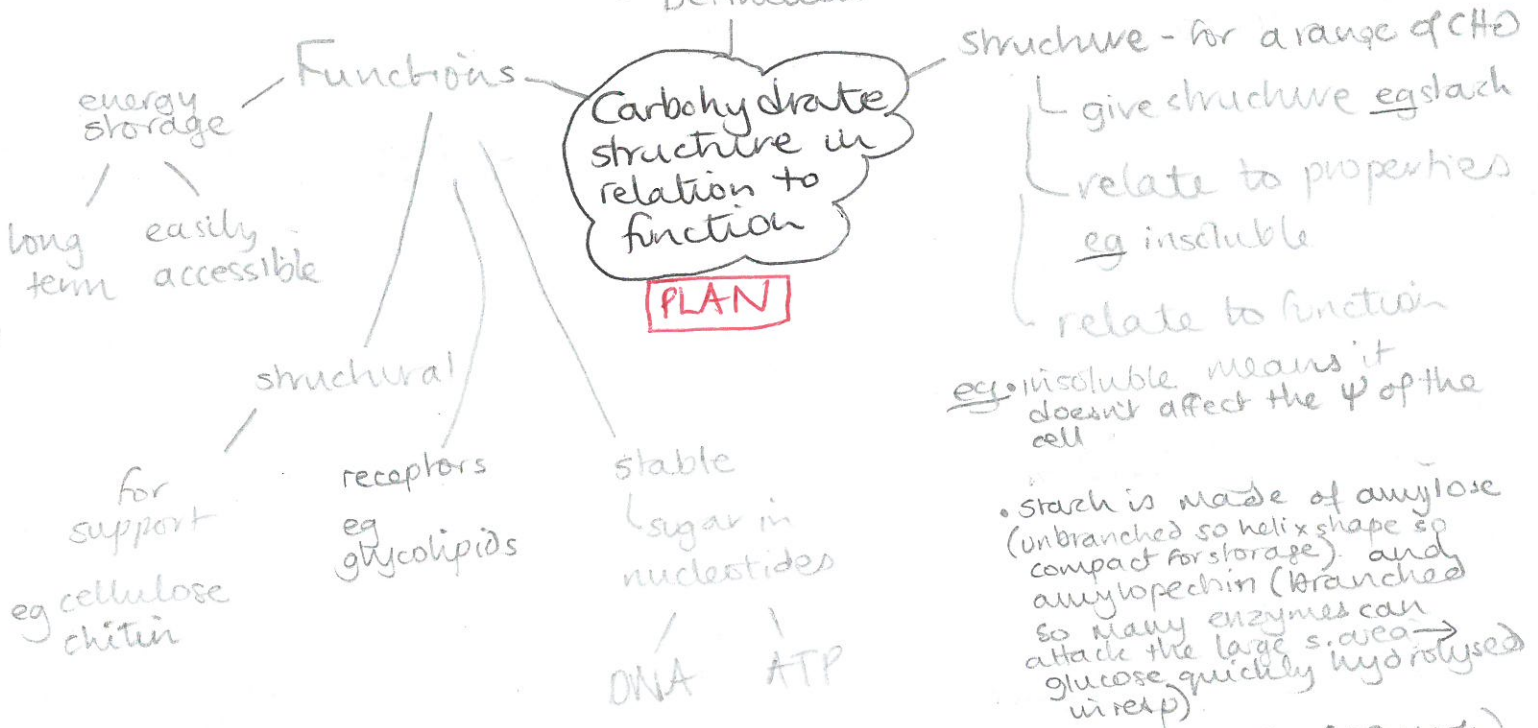 Definition
Functions
energy
storage
long
term
easily
accessible
structural
for
support
eg cellulose
chitin
receptors
eg
glycolipids
stable
sugar in
nucleotides
DNA
ATP
Carbohydrate
structure in
relation to
function
PLAN
structure - for a range of CHO
give structure eg starch
relate to properties
eg insoluble
relate to function
eg • insoluble means it
doesn't affect the ψ of the
cell
• starch is made of amylose
(unbranched so helix shape so
compact for storage) and
amylopectin (branched
so many enzymes can
attack the large s.area →
glucose quickly hydrolysed
in resp)